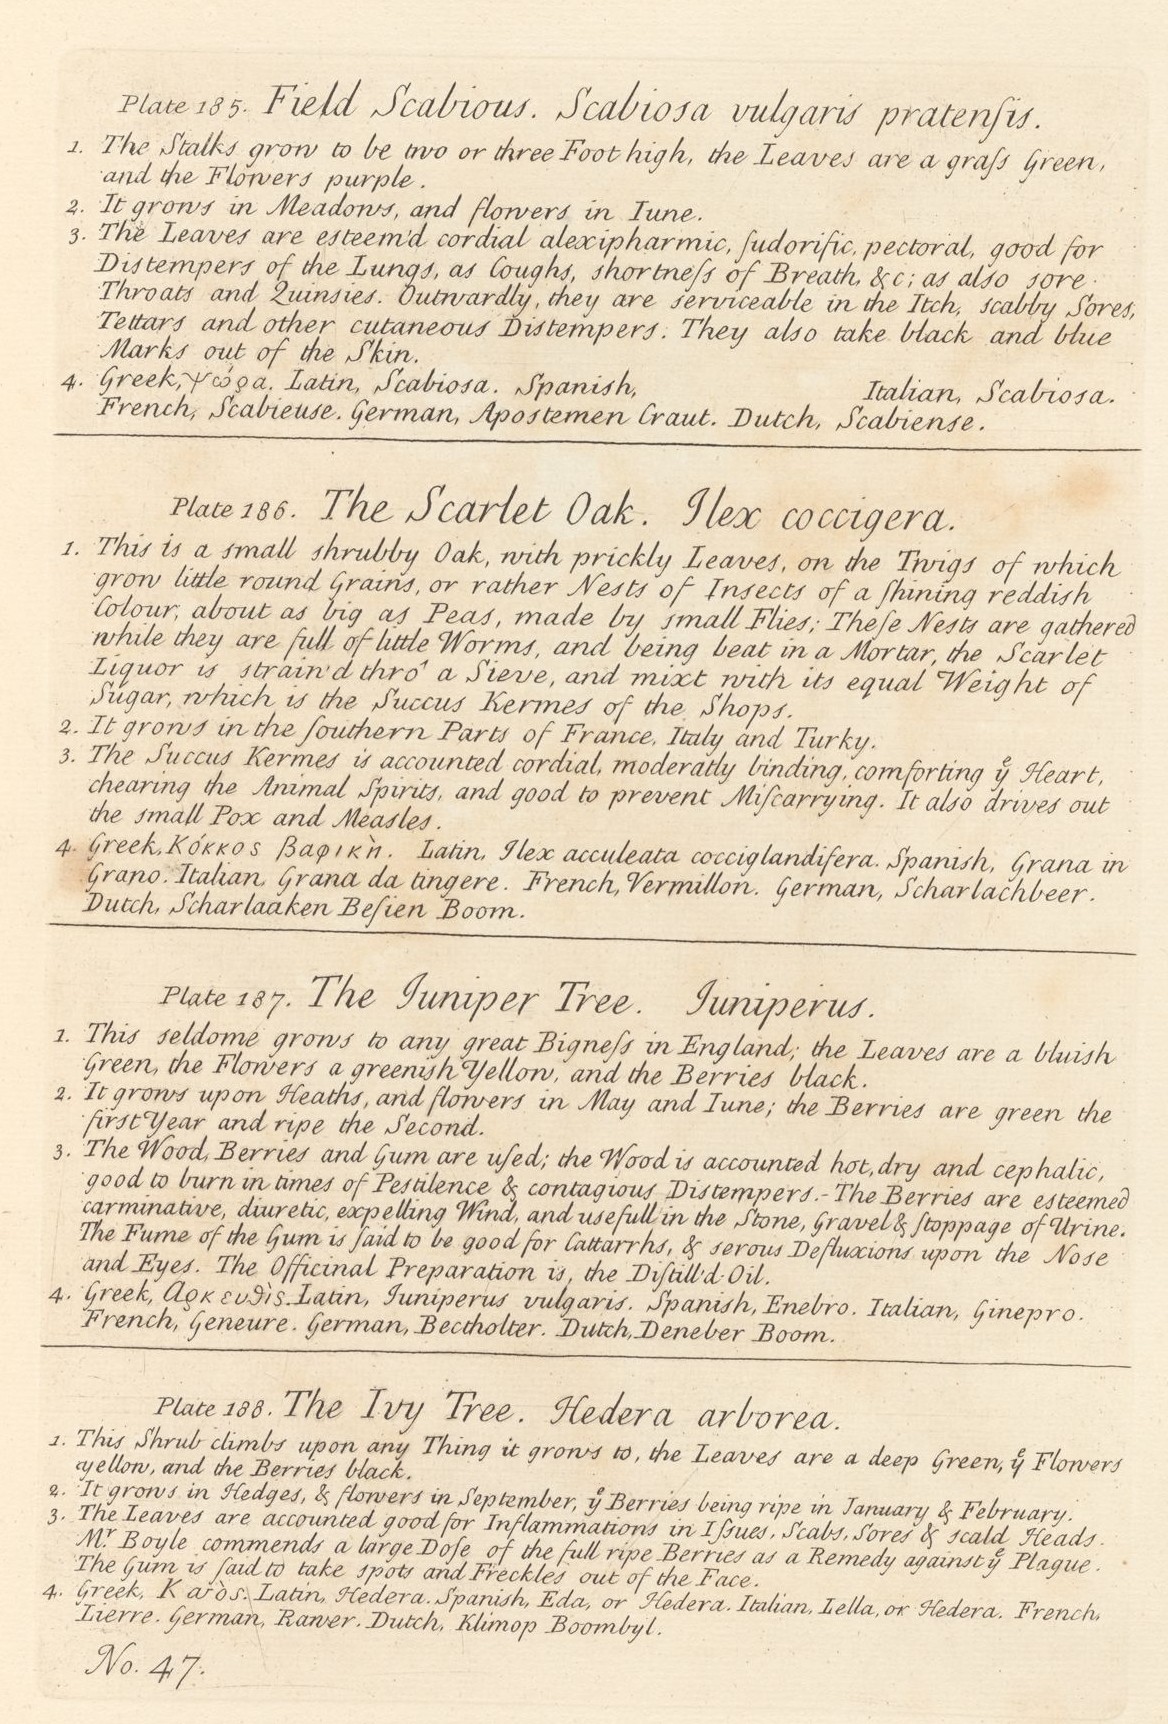 Plate 185. Field Scabious. Scabiosa vulgaris pratenſis.
1. The Stalks grow to be two or three Foot high, the Leaves are a graſs Green,
and the Flowers purple.
2. It grows in Meadows, and flowers in Iune.
3. The Leaves are esteem'd cordial alexipharmic, ſudorific, pectoral, good for
Distempers of the Lungs, as Coughs, shortneſs of Breath, &c; as also sore
Throats and Quinsies. Outwardly, they are serviceable in the Itch, scabby Sores,
Tettars and other cutaneous Distempers. They also take black and blue
Marks out of the Skin.
4. Greek, Ψώρα. Latin, Scabiosa. Spanish, Italian, Scabiosa.
French, Scabieuse. German, Apostemen Craut. Dutch, Scabiense.
Plate 186. The Scarlet Oak. Ilex coccigera.
1. This is a small shrubby Oak, with prickly Leaves, on the Twigs of which
grow little round Grains, or rather Nests of Insects of a ſhining reddish
Colour, about as big as Peas, made by small Flies; Theſe Nests are gathered
while they are full of little Worms, and being beat in a Mortar, the Scarlet
Liquor is strain'd thro' a Sieve, and mixt with its equal Weight of
Sugar, which is the Succus Kermes of the Shops.
2. It grows in the ſouthern Parts of France, Italy and Turky.
3. The Succus Kermes is accounted cordial, moderatly binding, comforting yͤ Heart,
chearing the Animal Spirits, and good to prevent Miſcarrying. It also drives out
the small Pox and Measles.
4. Greek, Κόκκος βαφικὴ. Latin, Ilex acculeata cocciglandifera. Spanish, Grana in
Grano. Italian, Grana da tingere. French, Vermillon. German, Scharlachbeer.
Dutch, Scharlaaken Beſien Boom.
Plate 187. The Iuniper Tree. Iuniperus.
1. This seldome grows to any great Bigneſs in England; the Leaves are a bluish
Green, the Flowers a greenish Yellow, and the Berries black.
2. It grows upon Heaths, and flowers in May and Iune; the Berries are green the
first Year and ripe the Second.
3. The Wood, Berries and Gum are uſed; the Wood is accounted hot, dry and cephalic,
good to burn in times of Pestilence & contagious Distempers.- The Berries are esteemed
carminative, diuretic, expelling Wind, and usefull in the Stone, Gravel & ſtoppage of Urine.
The Fume of the Gum is ſaid to be good for Cattarrhs, & serous Defluxions upon the Nose
and Eyes. The Officinal Preparation is, the Diſtill'd Oil.
4. Greek, Αρκευθὶς. Latin, Iuniperus vulgaris. Spanish, Enebro. Italian, Ginepro.
French, Geneure. German, Bectholter. Dutch, Deneber Boom.
Plate 188. The Ivy Tree. Hedera arborea.
1. This Shrub climbs upon any Thing it grows to, the Leaves are a deep Green, yͤ Flowers
yellow, and the Berries black.
2. It grows in Hedges, & flowers in September, yͤ Berries being ripe in January & February.
3. The Leaves are accounted good for Inflammations in Iſsues, Scabs, Sores & scald Heads.
Mʳ Boyle commends a large Doſe of the full ripe Berries as a Remedy against yͤ Plague.
The Gum is ſaid to take spots and Freckles out of the Face.
4. Greek, Latin, Hedera. Spanish, Eda, or Hedera. Italian, Lella, or Hedera. French,
Lierre. German, Rawer. Dutch, Klimop Boombyl.
No. 47.